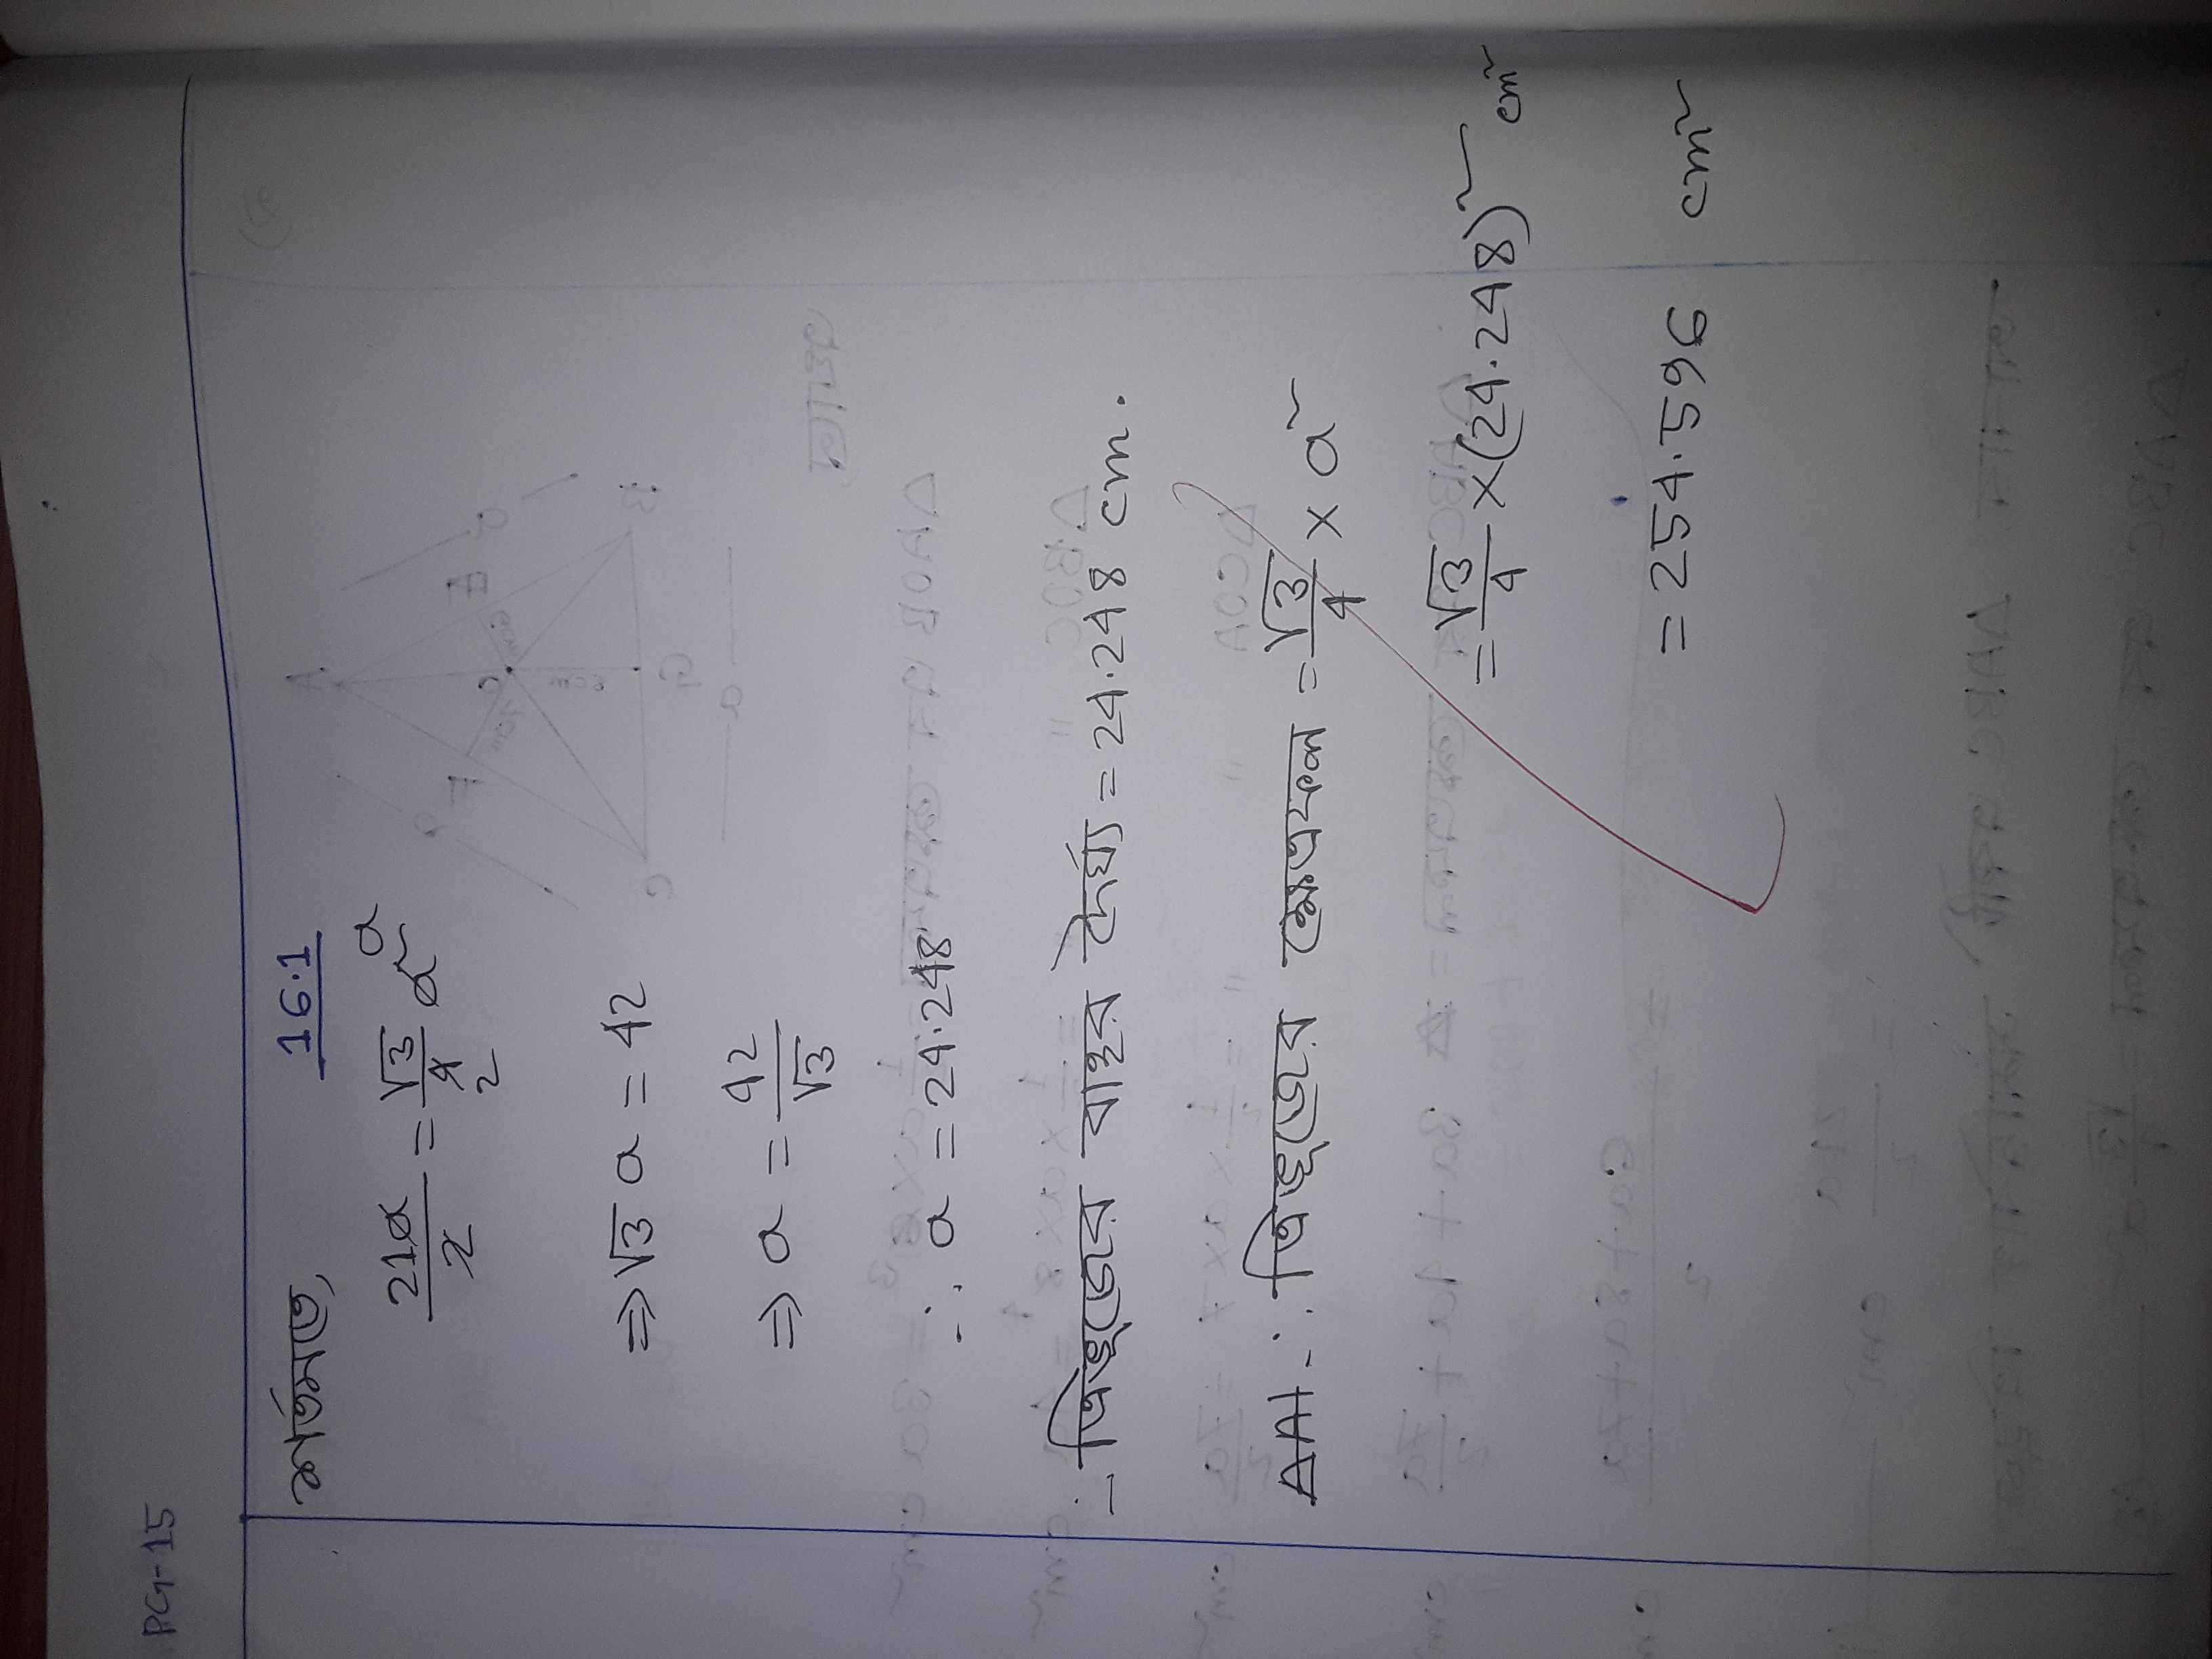 PG-15
শর্তমতে, 16.1
21a/2 = √3/4 a² a
2
⇒ √3 a = 42
⇒ a = 42/√3
∴ a = 24.248
∴ ত্রিভূজের বাহুর দৈর্ঘ্য = 24.248 cm.
∴ ত্রিভূজের ক্ষেত্রফল = √3/4 × a²
= √3/4 × (24.248)² cm²
= 254.596 cm²